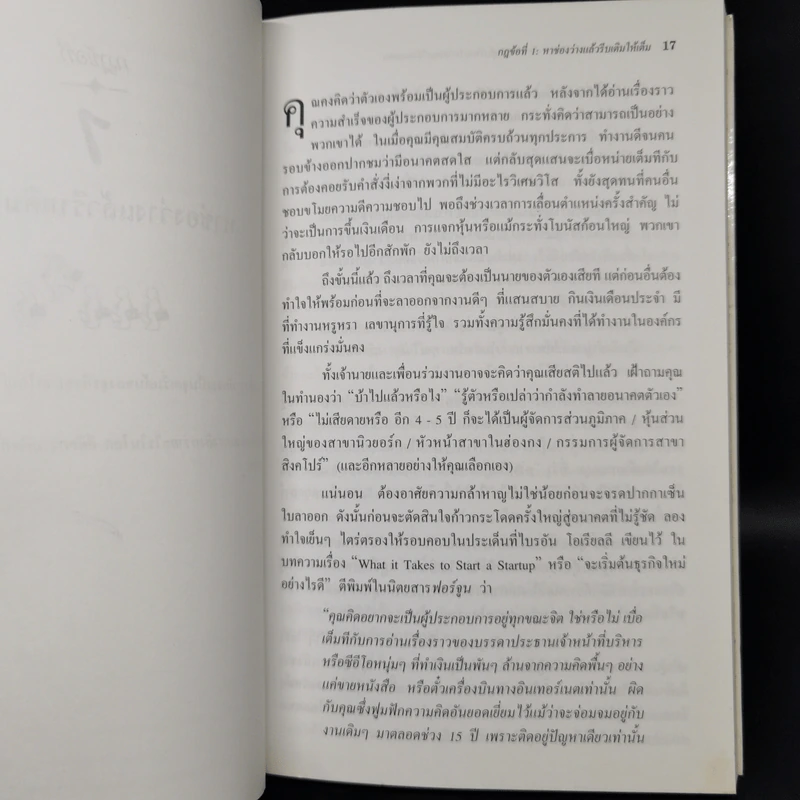 กฎข้อที่ 1: หาช่องว่างแล้วรีบเติมให้เต็ม 17
คุณคงคิดว่าตัวเองพร้อมเป็นผู้ประกอบการแล้ว หลังจากได้อ่านเรื่องราว
ความสำเร็จของผู้ประกอบการมากหลาย กระทั่งคิดว่าสามารถเป็นอย่าง
พวกเขาได้ ในเมื่อคุณมีคุณสมบัติครบถ้วนทุกประการ ทำงานดีจนคน
รอบข้างออกปากชมว่ามีอนาคตสดใส แต่กลับสุดแสนจะเบื่อหน่ายเต็มทีกับ
การต้องคอยรับคำสั่งงี่เง่าจากพวกที่ไม่มีอะไรวิเศษวิโส ทั้งยังสุดทนที่คนอื่น
ชอบขโมยความดีความชอบไป พอถึงช่วงเวลาการเลื่อนตำแหน่งครั้งสำคัญ ไม่
ว่าจะเป็นการขึ้นเงินเดือน การแจกหุ้นหรือแม้กระทั่งโบนัสก้อนใหญ่ พวกเขา
กลับบอกให้รอไปอีกสักพัก ยังไม่ถึงเวลา
ถึงขั้นนี้แล้ว ถึงเวลาที่คุณจะต้องเป็นนายของตัวเองเสียที แต่ก่อนอื่นต้อง
ทำใจให้พร้อมก่อนที่จะลาออกจากงานดีๆ ที่แสนสบาย กินเงินเดือนประจำ มี
ที่ทำงานหรูหรา เลขานุการที่รู้ใจ รวมทั้งความรู้สึกมั่นคงที่ได้ทำงานในองค์กร
ที่แข็งแกร่งมั่นคง
ทั้งเจ้านายและเพื่อนร่วมงานอาจจะคิดว่าคุณเสียสติไปแล้ว เฝ้าถามคุณ
ในทำนองว่า “บ้าไปแล้วหรือไง” “รู้ตัวหรือเปล่าว่ากำลังทำลายอนาคตตัวเอง”
หรือ “ไม่เสียดายหรือ อีก 4 - 5 ปี ก็จะได้เป็นผู้จัดการส่วนภูมิภาค / หุ้นส่วน
ใหญ่ของสาขานิวยอร์ก / หัวหน้าสาขาในฮ่องกง / กรรมการผู้จัดการสาขา
สิงคโปร์” (และอีกหลายอย่างให้คุณเลือกเอง)
แน่นอน ต้องอาศัยความกล้าหาญไม่ใช่น้อยก่อนจะจรดปากกาเซ็น
ใบลาออก ดังนั้นก่อนจะตัดสินใจก้าวกระโดดครั้งใหญ่สู่อนาคตที่ไม่รู้ชัด ลอง
ทำใจเย็นๆ ไตร่ตรองให้รอบคอบในประเด็นที่ไบรอัน โอเรียลลี เขียนไว้ ใน
บทความเรื่อง “What it Takes to Start a Startup” หรือ “จะเริ่มต้นธุรกิจใหม่
อย่างไรดี” ตีพิมพ์ในนิตยสารฟอร์จูน ว่า
“คุณคิดอยากจะเป็นผู้ประกอบการอยู่ทุกขณะจิต ใช่หรือไม่ เบื่อ
เต็มทีกับการอ่านเรื่องราวของบรรดาประธานเจ้าหน้าที่บริหาร
หรือซีอีโอหนุ่มๆ ที่ทำเงินเป็นพันๆ ล้านจากความคิดพื้นๆ อย่าง
แค่ขายหนังสือ หรือตั๋วเครื่องบินทางอินเทอร์เนตเท่านั้น ผิด
กับคุณซึ่งฟูมฟักความคิดอันยอดเยี่ยมไว้แม้ว่าจะจ่อมจมอยู่กับ
งานเดิมๆ มาตลอดช่วง 15 ปี เพราะติดอยู่ปัญหาเดียวเท่านั้น